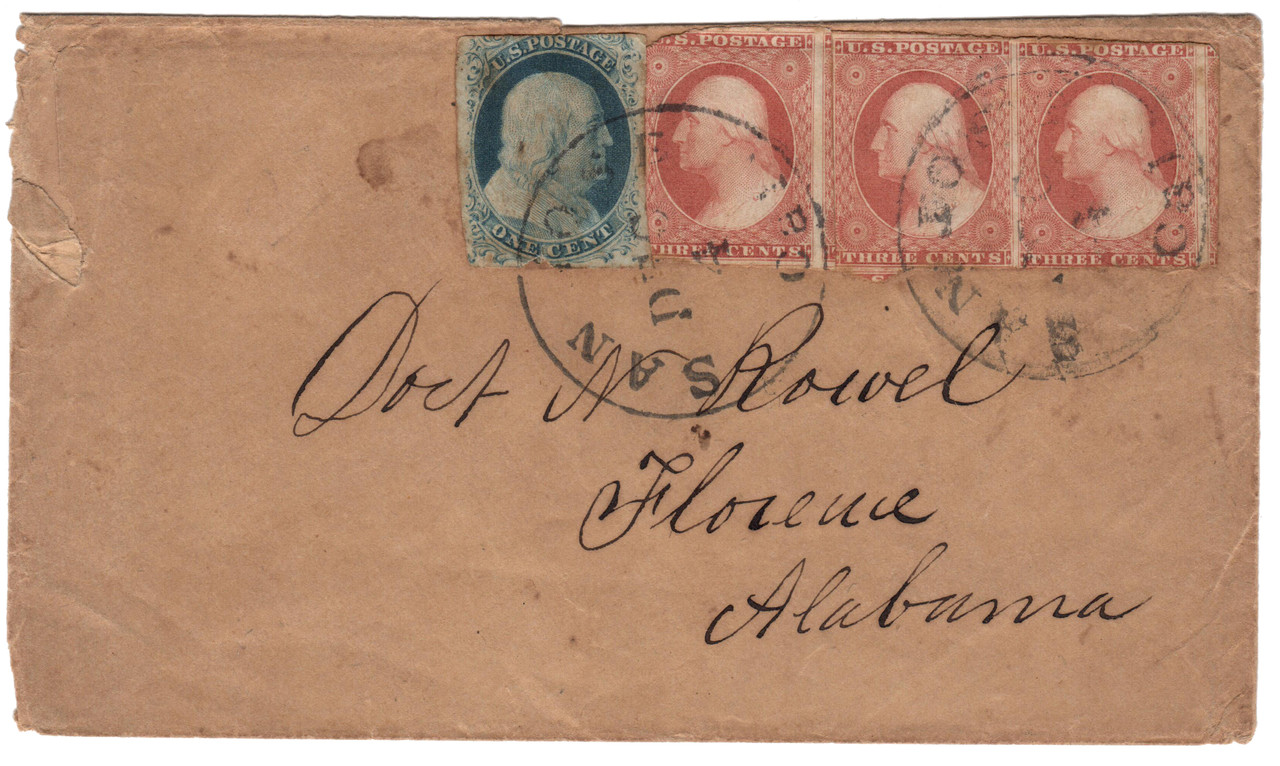 U.S. POSTAGE U.S. POSTAGE U.S. POSTAGE U.S. POSTAGE
ONE CENT THREE CENTS THREE CENTS THREE CENTS
SAN
SAN
Doct N Rowel
Florence
Alabama